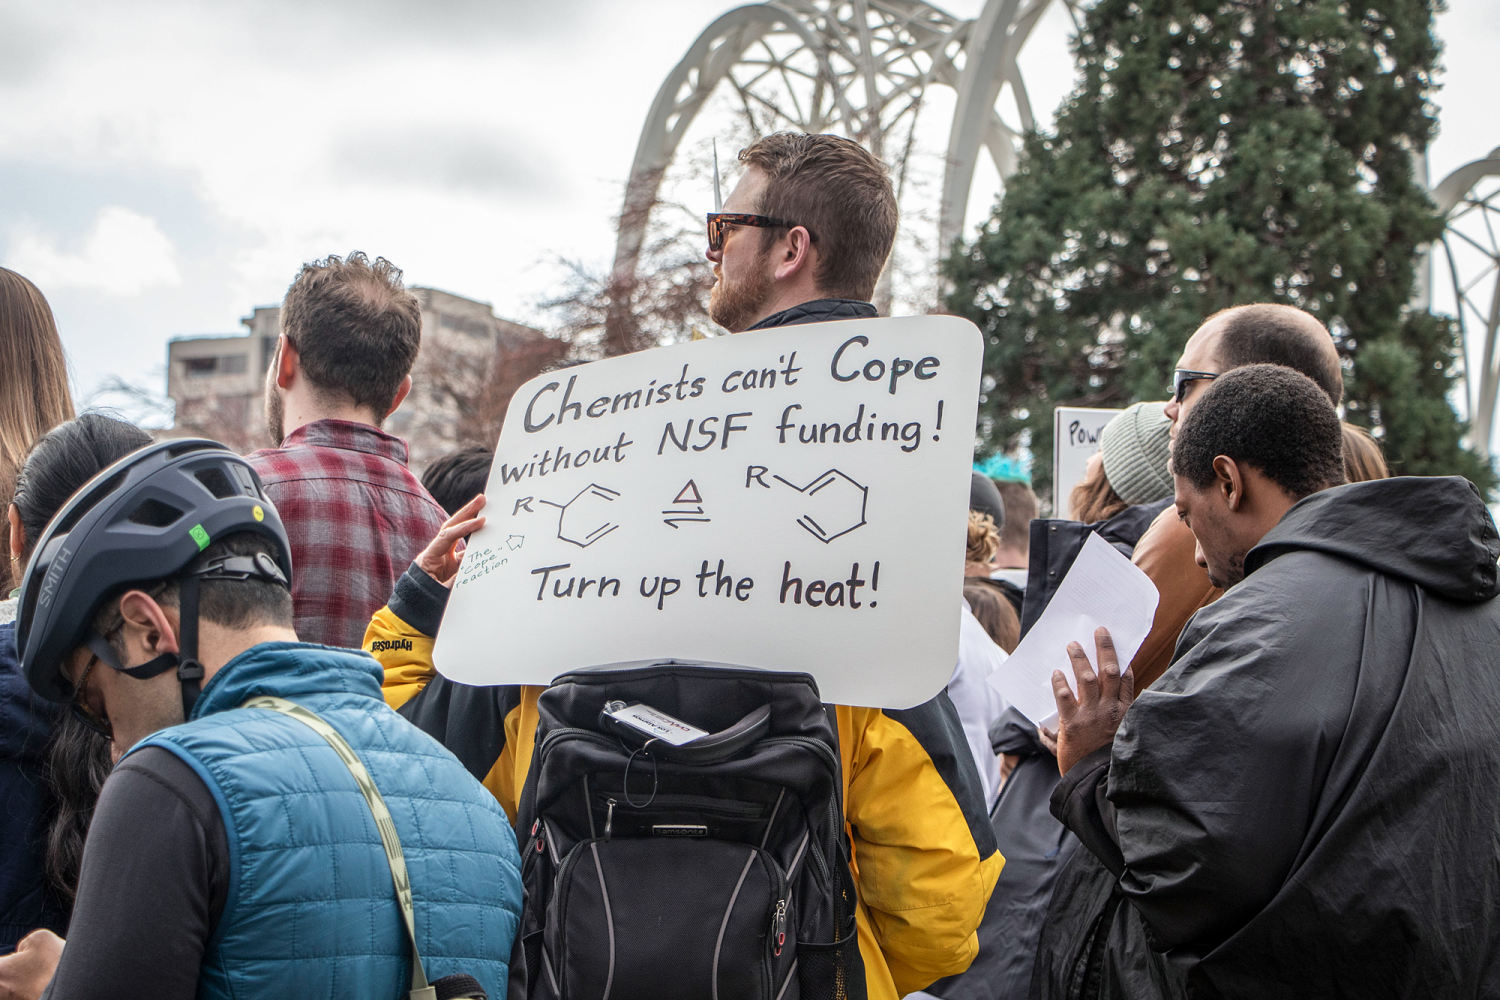 Chemists can't Cope
without NSF funding!
R
Δ
R
The
"Cope"
reaction
Turn up the heat!
SMITH
HydroSeal
Samsonite
Pow